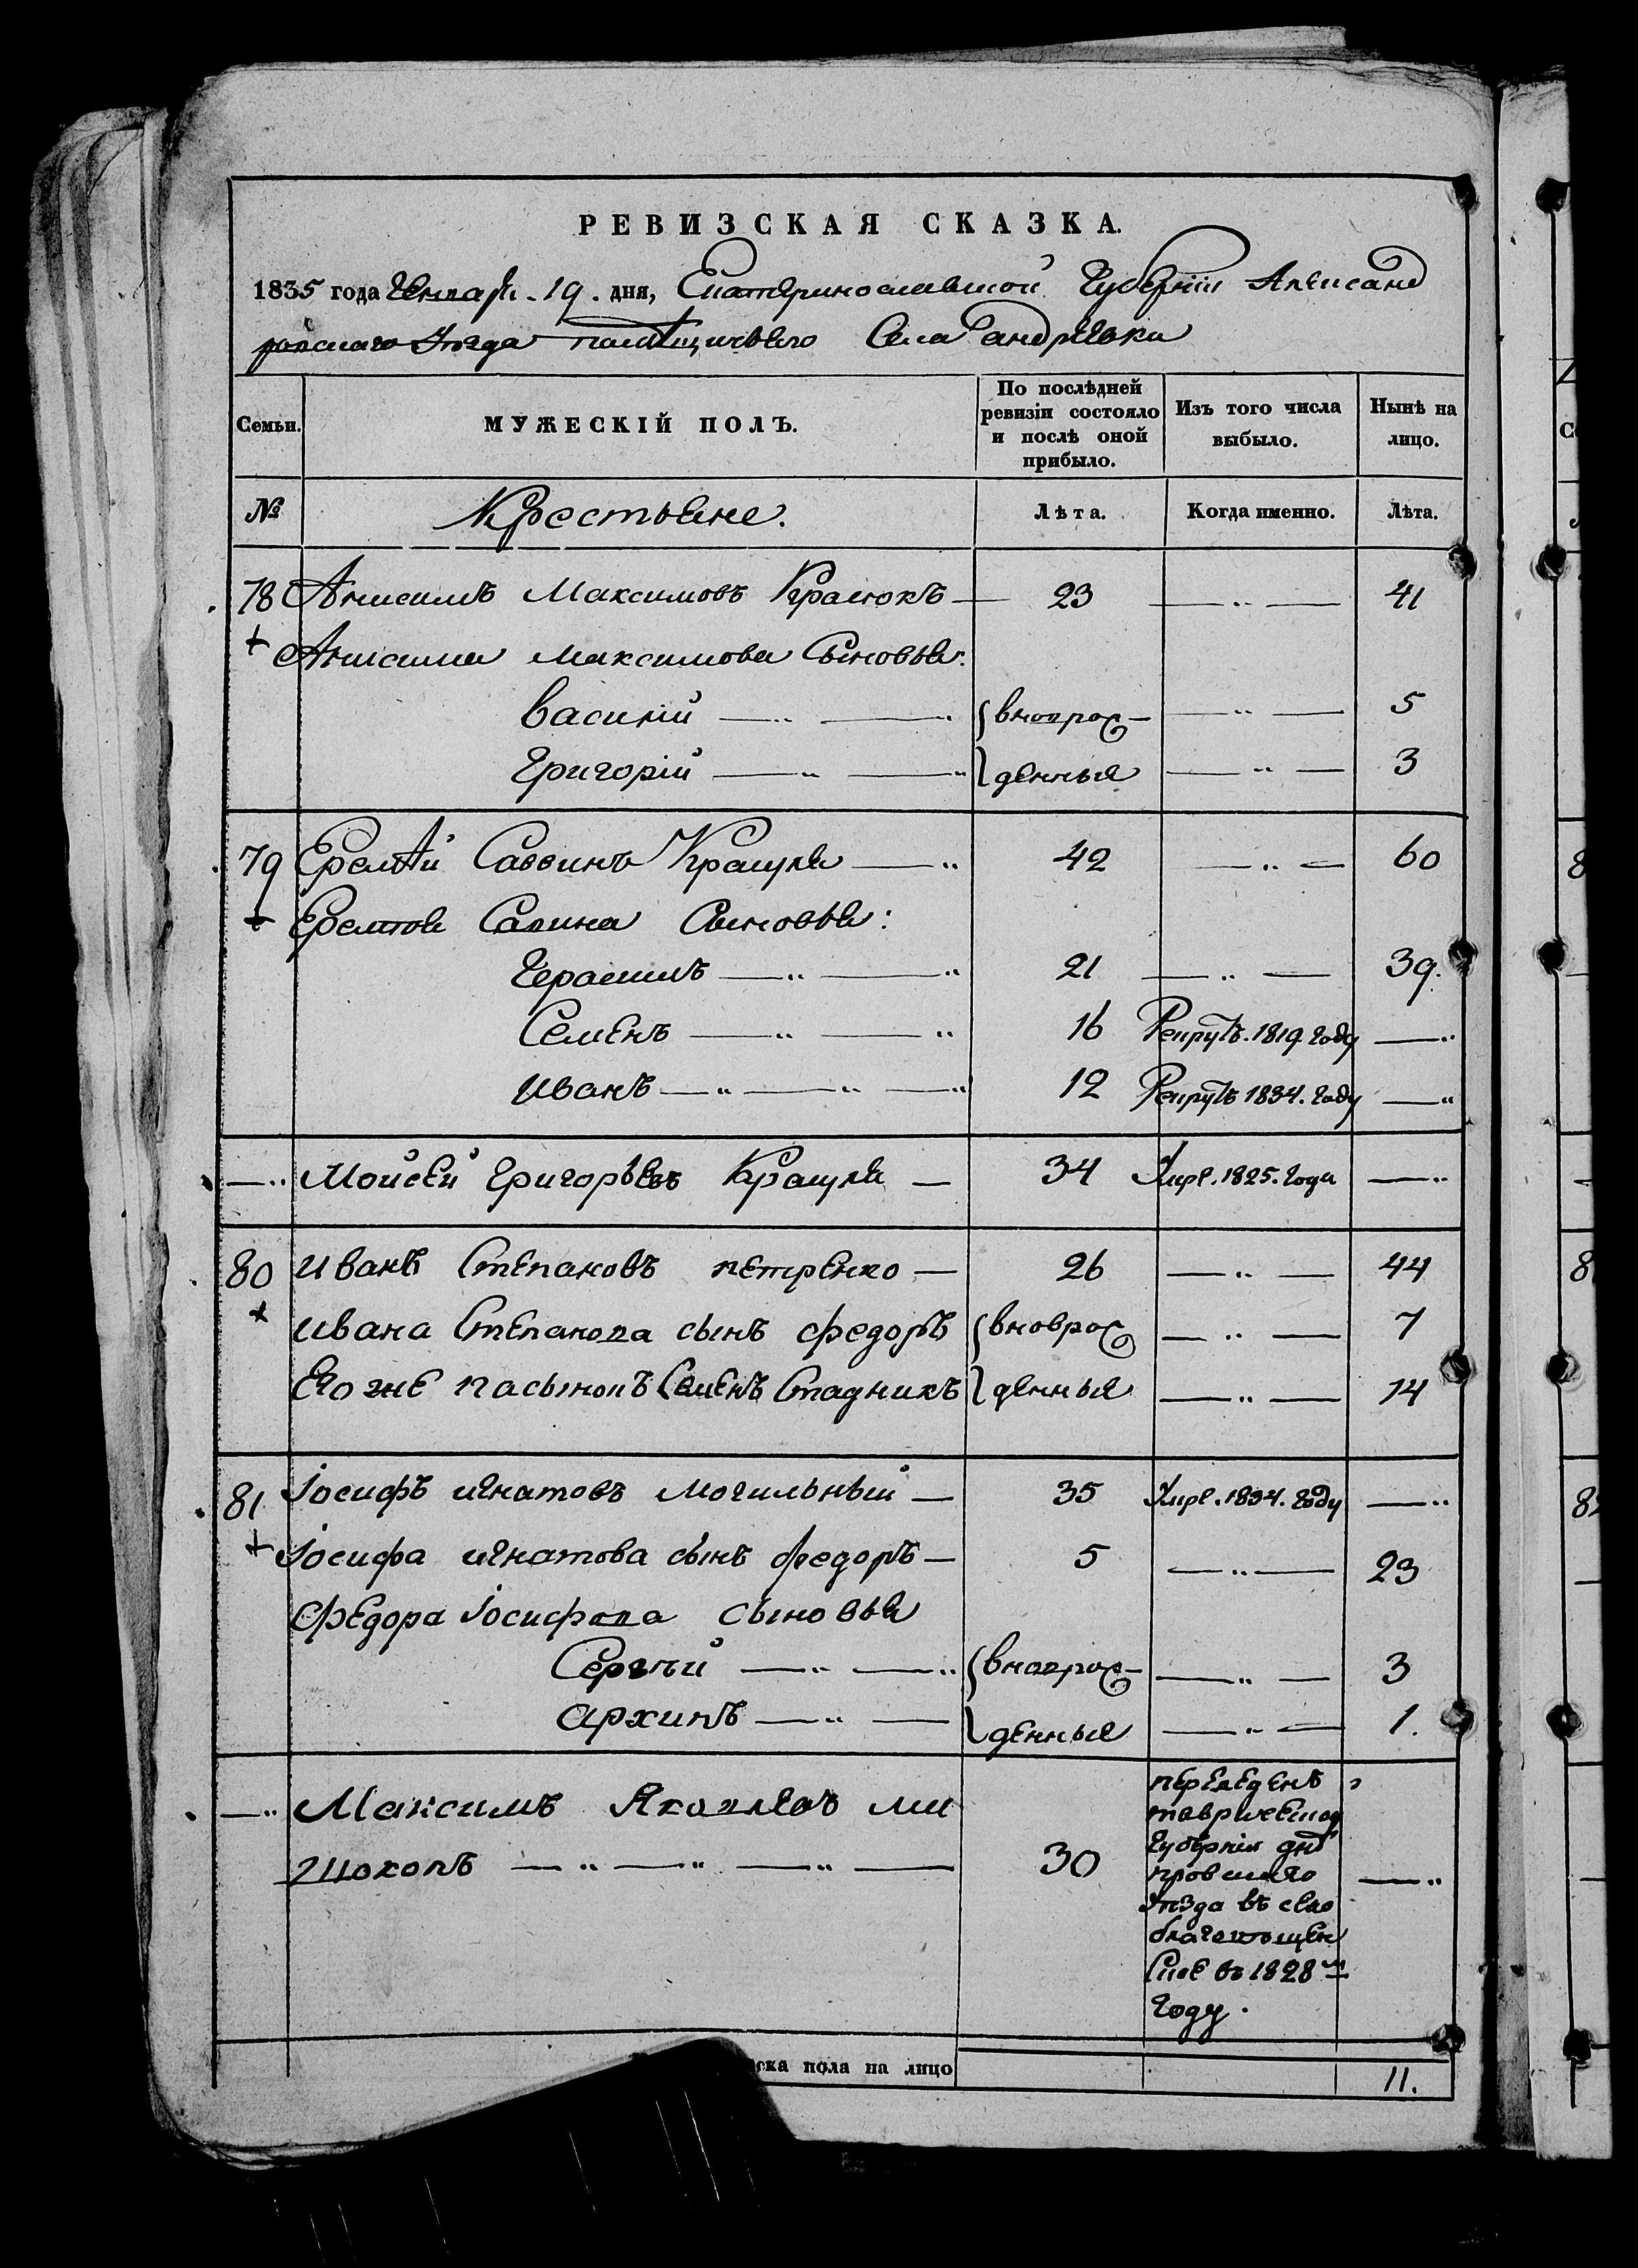 РЕВИЗСКАЯ СКАЗКА.
1835 года Генваря. 19. дня, Екатеринославской Губерніи Александ
ровскаго Уѣзда помѣщичьяго Села андреѣвки
Семьи. МУЖЕСКІЙ ПОЛЪ. По послѣдней ревизіи состояло и послѣ оной прибыло. Изъ того числа выбыло. Нынѣ на лицо.
№ Крестьяне. Лѣта. Когда именно. Лѣта.
78 Анисимъ Максимовъ 23 — „ — 41
+ Анисима Максимова Сыновья:
Василій — „ — „ вноврож — „ — 5
Григорій — „ — „ денныя — „ — 3
79 Еремѣй Саввинъ Кракуля — „ 42 — „ — 60
+ Еремѣя Савина Сыновья:
Герасимъ — „ — „ 21 — „ — 39.
Семенъ — „ — „ 16 Рекрутъ. 1819. году — „
Иванъ — „ — „ — „ 12 Рекрутъ 1834. году — „
— „ Мойсей Григорьевъ Кракуля — 34 Умре. 1825. года — „
80 Иванъ Степановъ петренко — 26 — „ — 44
+ Ивана Степанова сынъ федоръ вноврож — „ — 7
Его же пасынокъ Семенъ Стадникъ денныя — „ — 14
81 Іосифъ игнатовъ Могильный — 35 Умре. 1834. году — „
+ Іосифа игнатова сынъ федоръ — 5 — „ — 23
Федора Іосифова сыновья
Сергѣй — „ — „ вноврож — „ — 3
архипъ — „ — денныя — „ — 1.
— „ Максимъ Яковлевъ
— „ — „ — „ — 30 — „
переведенъ
таврической
Губерніи дне
провскаго
Уѣзда въ село
благовѣщен
ское въ 1828м
году.
ска пола на лицо 11.